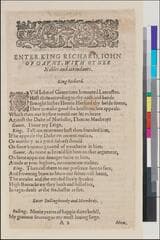 ENTER KING RICHARD, IOHN
OF GAVNT, WITH OTHER
Nobles and attendants.
King Richard.
OVld Iohn of Gaunt time honoured Lancaster,
Hast thou according to thy oath and bande
Brought hither Henrie Herford thy bolde sonne,
Here to make good the boistrous late appeale,
Which then our leysure would not let vs heare
Against the Duke of Norfolke, Thomas Mowbray?
Gaunt. I haue my Leige.
King. Tell me moreouer hast thou sounded him,
If he appeale the Duke on ancient malice,
Or worthily as a good subiect should
On some knowne ground of treacherie in him.
Gaunt. As neere as I could sift him on that argument,
On some apparent danger seene in him,
Aimde at your highnes, no inueterate malice.
King. Then call them to our presence face to face,
And frowning brow to brow our selues will heare,
The accuser and the accused freely speake:
High stomackt are they both and full of ire,
In rage, deafe as the sea, hastie as fire.
Enter Bullingbrooke and Mowbray.
Bulling. Manie yeares of happie daies befall,
My gratious soueraigne my most louing liege.
A 2 Mow.